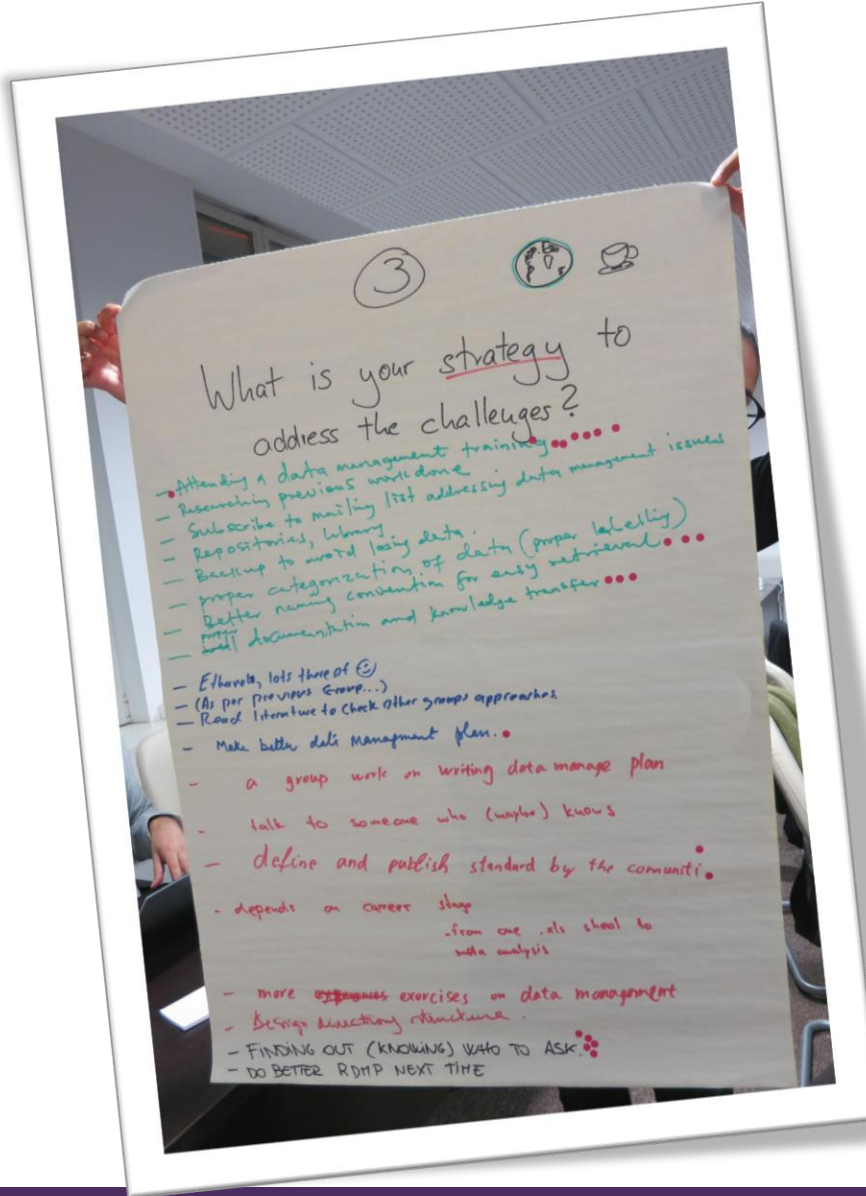 3
What is your strategy to
address the challenges?
- Attending a data management training
- Researching previous work done
- Subscribe to mailing list addressing data management issues
- Repositories, library
- Backup to avoid losing data.
- proper categorization of data (proper labelling)
- Better naming convention for easy retrieval
- proper documentation and knowledge transfer
- Ethanol, lots there of
- (As per previous Group...)
- Read literature to check other groups approaches
- Make better data Managment plan.
- a group work on writing data manage plan
- talk to someone who (maybe) knows
- define and publish standard by the comuniti
- depends on career stage
- from one .xls sheet to
meta analysis
- more exercises on data management
- Design directory structure.
- FINDING OUT (KNOWING) WHO TO ASK.
- DO BETTER RDMP NEXT TIME